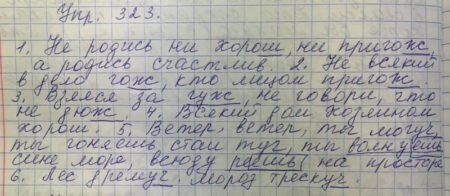 Упр. 323.
1. Не родись ни хорош, ни пригож,
а родись счастлив. 2. Не всякий
в дело гож, кто лицом пригож
3. Взялся за гуж, не говори, что
не дюж. 4. Всякий дом хозяином
хорош. 5. Ветер, ветер, ты могуч,
ты гоняешь стаи туч, ты волнуешь
сине море, всюду реешь на просторе
6. Лес дремуч. Мороз трескуч.